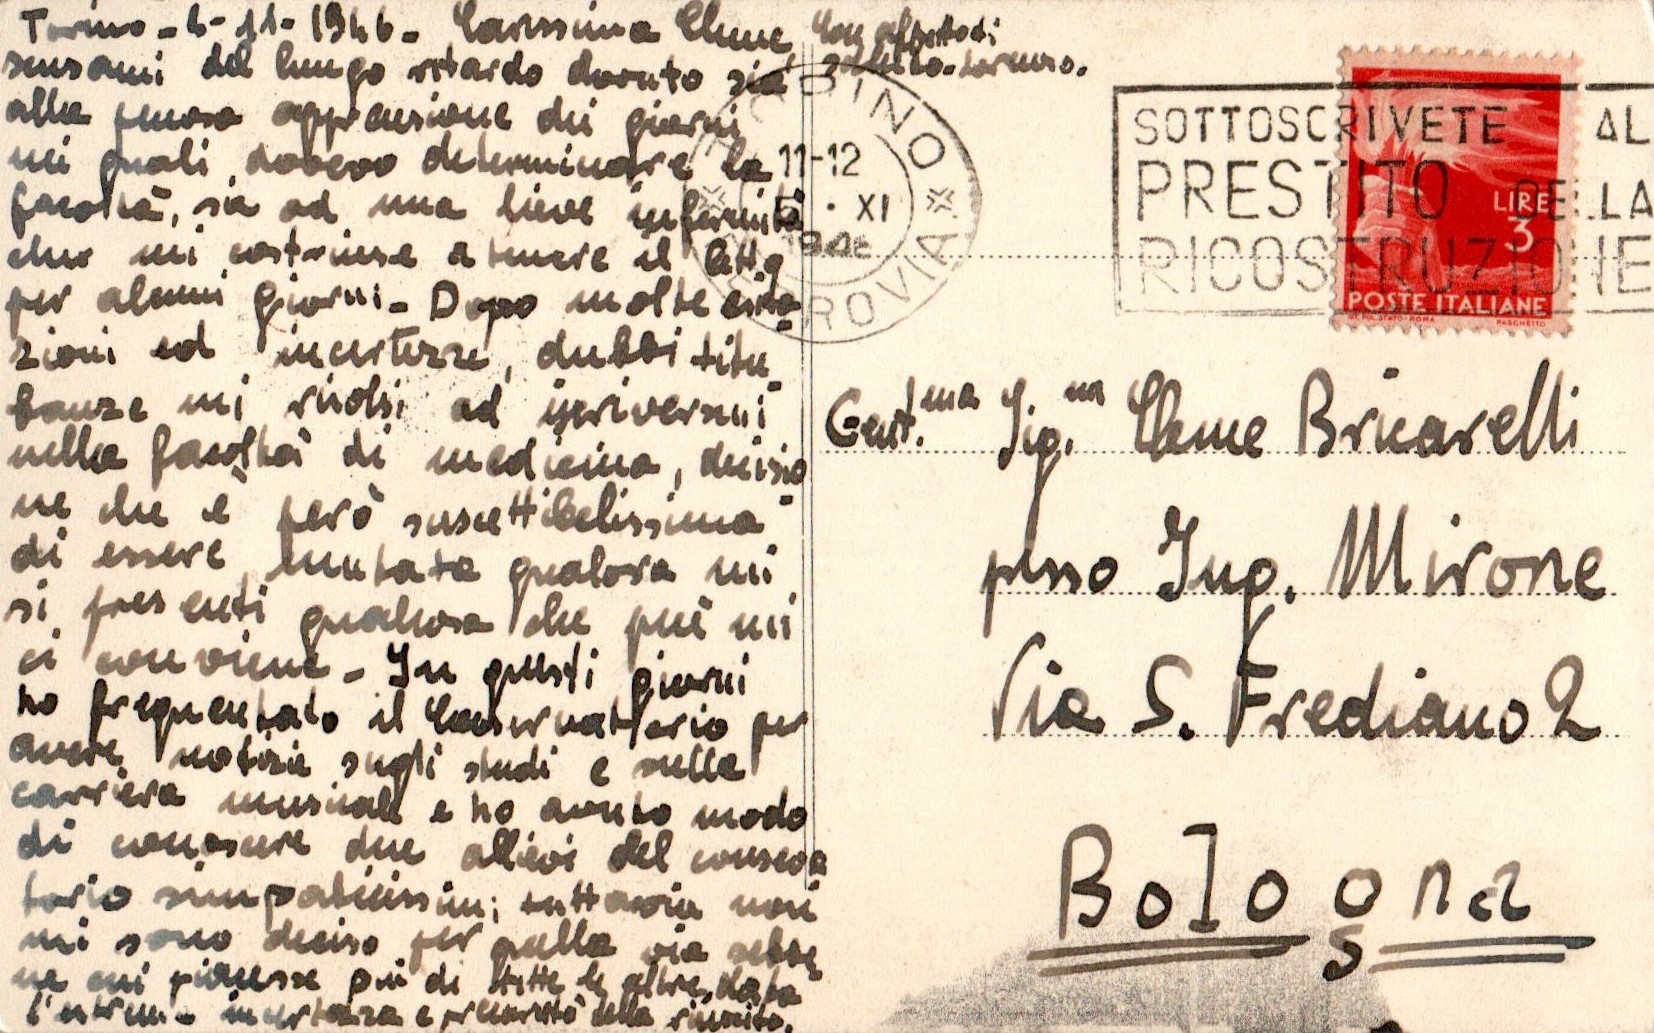 Torino - 4-11-1946 - Carissima Cleme
scusami del lungo ritardo dovuto sia
alla penosa apprensione dei giorni
nei quali dovevo determinare la
facoltà, sia ad una lieve infermità
che mi costrinse a tenere il letto
per alcuni giorni - Dopo molte esita-
zioni ed incertezze, dubbi titu-
banze mi risolsi ad iscrivermi
nella facoltà di medicina, decisio
ne che è però suscettibelissima
di essere mutata qualora mi
si presenti qualcosa che più mi
ci conviene - In questi giorni
ho frequentato il Conservatorio per
avere notizie sugli studi e sulla
carriera musicale e ho avuto modo
di conoscere due allievi del conserva
torio simpaticissimi; tuttavia non
mi sono deciso per quella via sebbe
ne mi piacesse più di tutte le altre, data
l'estrema incertezza e precarietà della riuscita.
Con affettuosi
saluto - Lorenzo.
TORINO
FERROVIA
11-12
5 · XI
1946
SOTTOSCRIVETE AL
PRESTITO DELLA
RICOSTRUZIONE
LIRE
3
POSTE ITALIANE
IST. POL. STATO-ROMA PASCHETTO
Gent.ma Sig.na Cleme Bricarelli
presso Ing. Mirone
Via S. Frediano 2
Bologna